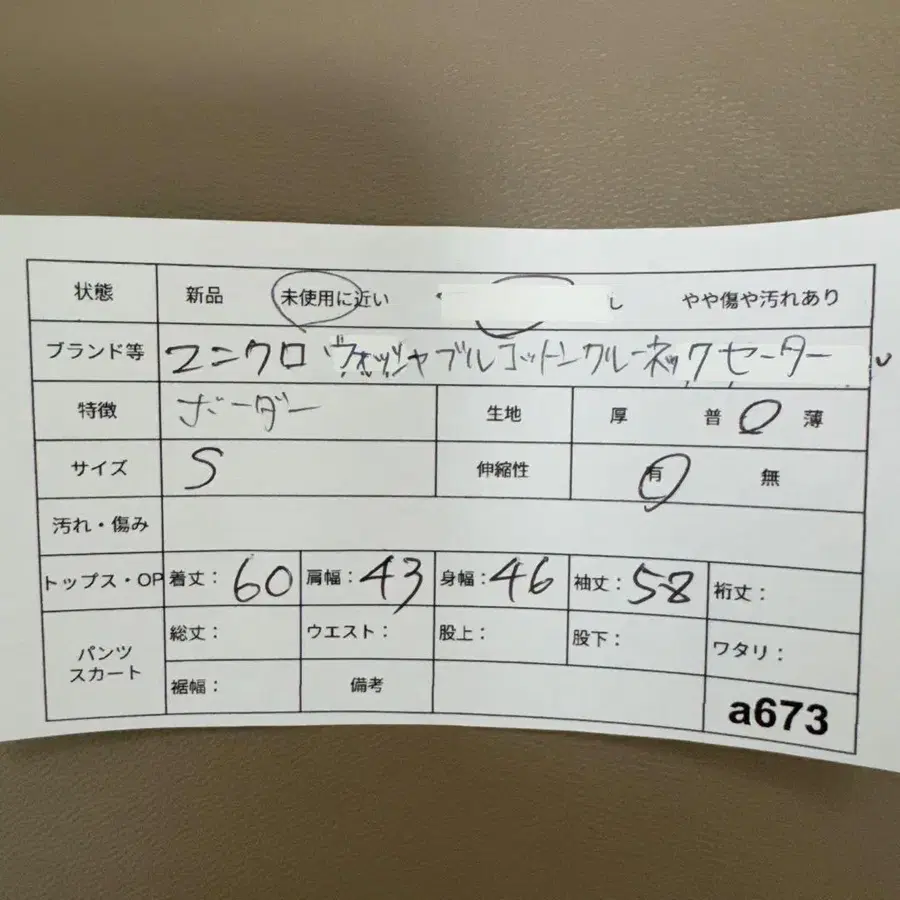 状態 新品 未使用に近い し やや傷や汚れあり
ブランド等 ユニクロ ウォッシャブルコットンクルーネックセーター
特徴 ボーダー 生地 厚 普 薄
サイズ S 伸縮性 有 無
汚れ・傷み
トップス・OP 着丈: 60 肩幅: 43 身幅: 46 袖丈: 58 裄丈:
パンツ スカート 総丈: ウエスト: 股上: 股下: ワタリ:
裾幅: 備考 a673